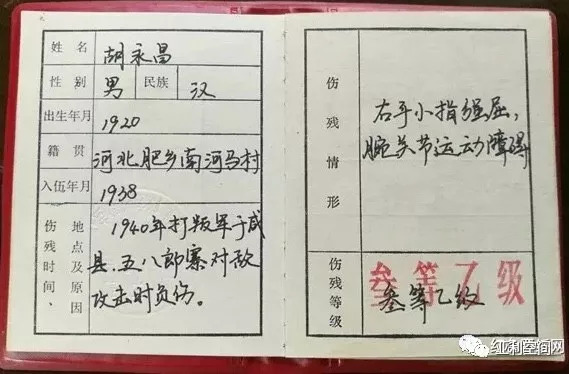 姓名 胡永昌
性别 男 民族 汉
出生年月 1920
籍贯 河北肥乡南河马村
入伍年月 1938
伤残时间、地点及原因
1940年打叛军于威
县.五八郎寨对敌
攻击时负伤。
伤残情形
右手小指强屈，
腕关节运动障碍
伤残等级
叁等乙级
叁等乙级
红利空间网